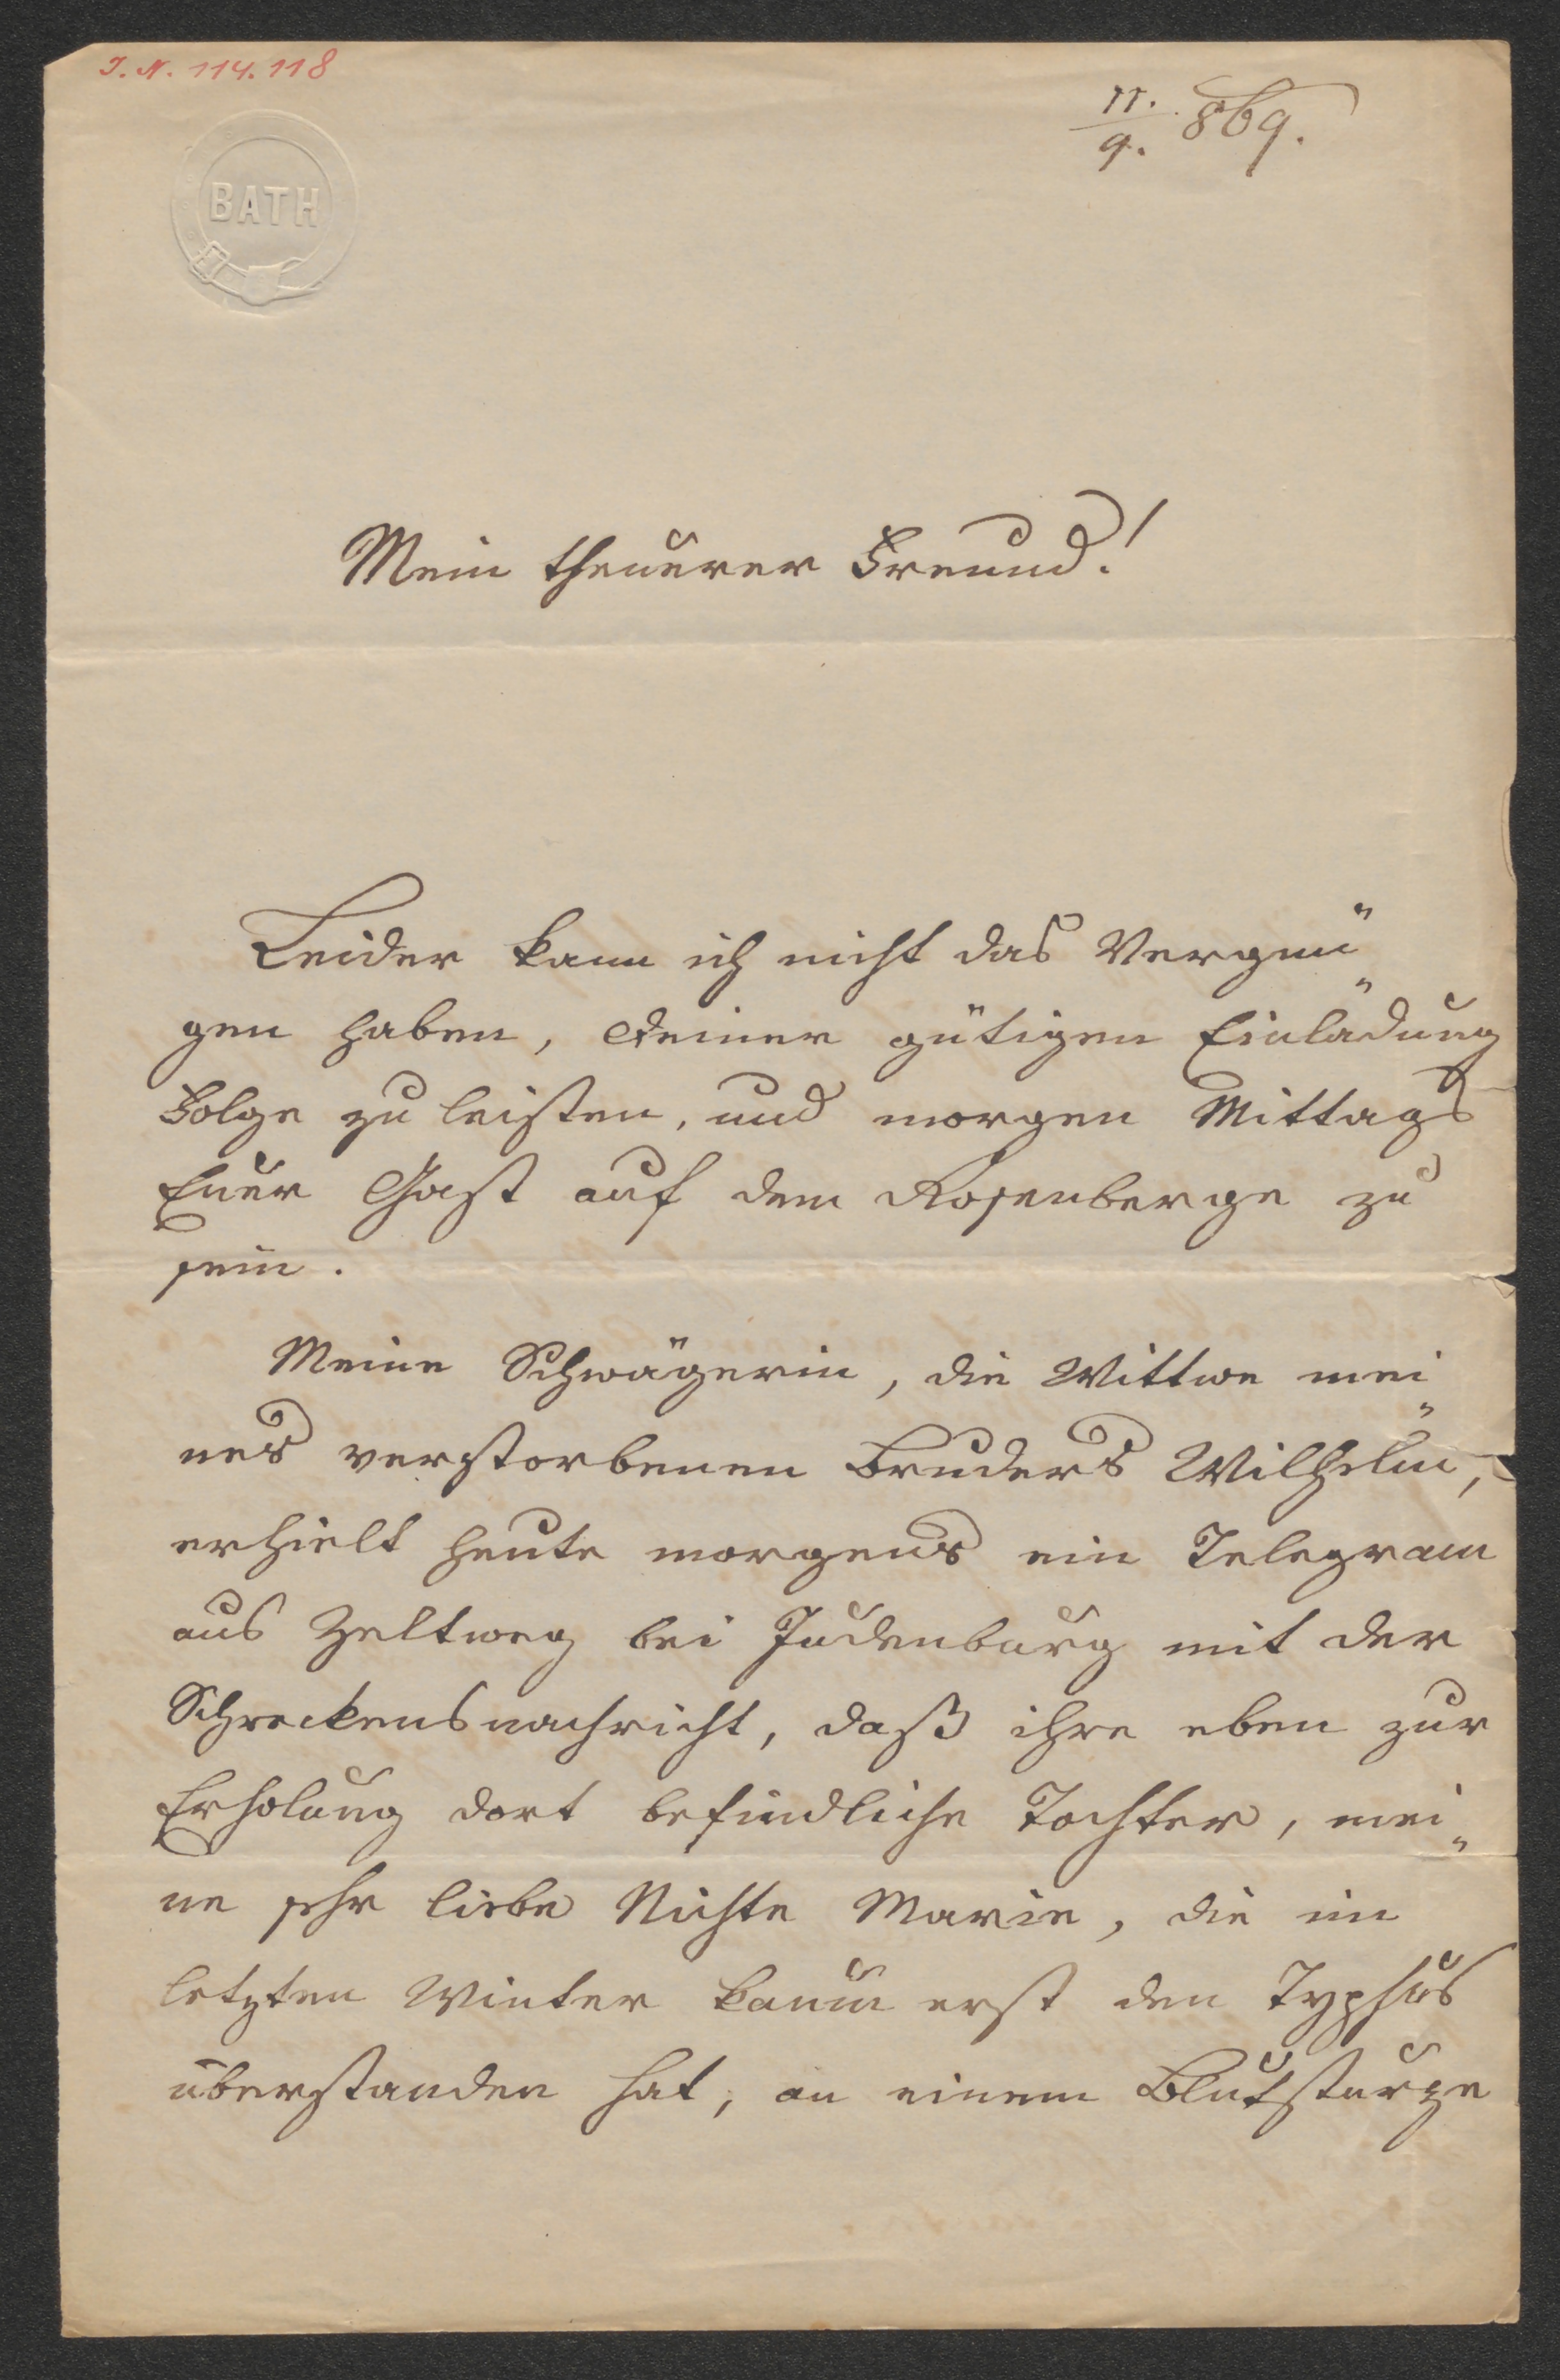 I. N. 114.118
11./9. 869.
BATH
Mein theuerer Freund!
Leider kann ich nicht das Vergnü"
gen haben, Deiner gütigen Einladung
Folge zu leisten, und morgen Mittags
Euer Gast auf dem Rosenberge zu
sein.
Meine Schwägerin, die Wittwe mei"
nes verstorbenen Bruders Wilhelm,
erhielt heute morgens ein Telegram
aus Zeltweg bei Judenburg mit der
Schreckensnachricht, daß ihre eben zur
Erholung dort befindliche Tochter, mei"
ne sehr liebe Nichte Marie, die im
letzten Winter kaum erst den Typhus
überstanden hat, an einem Blutsturze